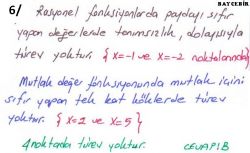 BAYÇEBİR
6/ Rasyonel fonksiyonlarda paydayı sıfır
yapan değerlerde tanımsızlık, dolayısıyla
türev yoktur. { x=-1 ve x=-2 noktalarında }
Mutlak değer fonksiyonunda mutlak içini
sıfır yapan tek kat köklerde türev
yoktur. { x=2 ve x=5 }
4 noktada türev yoktur. CEVAP B